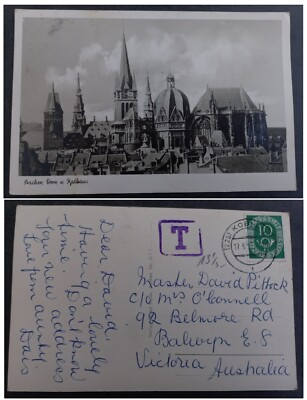 Aachen, Dom u. Rathaus
Dear David.
Having a lovely
time. Don't know
your new address
Love from aunty
Dais
T
10
Master David Pittock
C/O Mrs O'Connell
92 Belmore Rd
Balwyn E.8
Victoria Australia